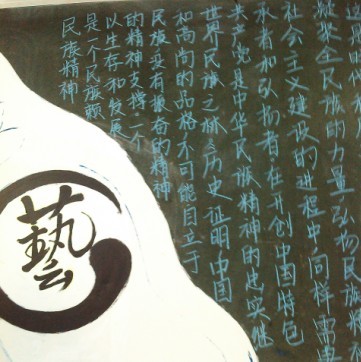 民族精神
是一个民族赖
以生存和发展
的精神支撑.一个
民族没有振奋的精神
和高尚的品格不可能自立于
世界民族之林.历史证明中国
共产党是中华民族精神的忠实继
承者和弘扬者.在开创中国特色
社会主义建设的进程中同样需要
凝聚全民族的力量弘扬民族
藝